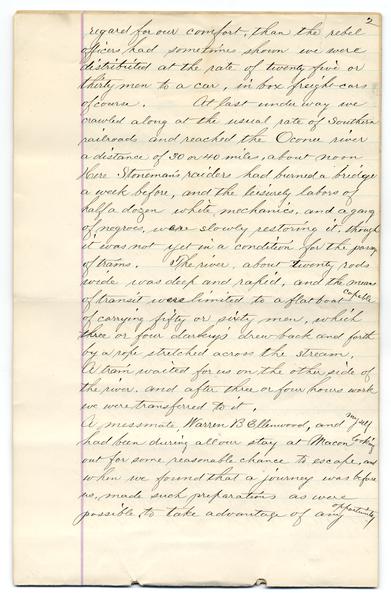 2
regard for our comfort, than the rebel
officers had sometimes shown we were
distributed at the rate of twenty five or
thirty men to a car, in box freight-cars
of course. At last under way we
crawled along at the usual rate of Southern
railroads and reached the Oconee river
a distance of 30 or 40 miles, about noon
Here Stoneman's raiders had burned a bridge
a week before, and the leisurely labors of
half a dozen white mechanics, and a gang
of negroes, were slowly restoring it, though
it was not yet in a condition for the passing
of trains. The river, about twenty rods
wide was deep and rapid, and the means
of transit were limited to a flat boat capable
of carrying fifty or sixty men, which
three or four darkeys drew back and forth
by a rope stretched across the stream.
A train waited for us on the other side of
the river. and after three or four hours work
we were transferred to it.
A messmate, Warren B Ellenwood, and myself
had been during all our stay at Macon looking
out for some reasonable chance to escape, and
when we found that a journey was before
us, made such preparations as were
possible, to take advantage of any opportunity